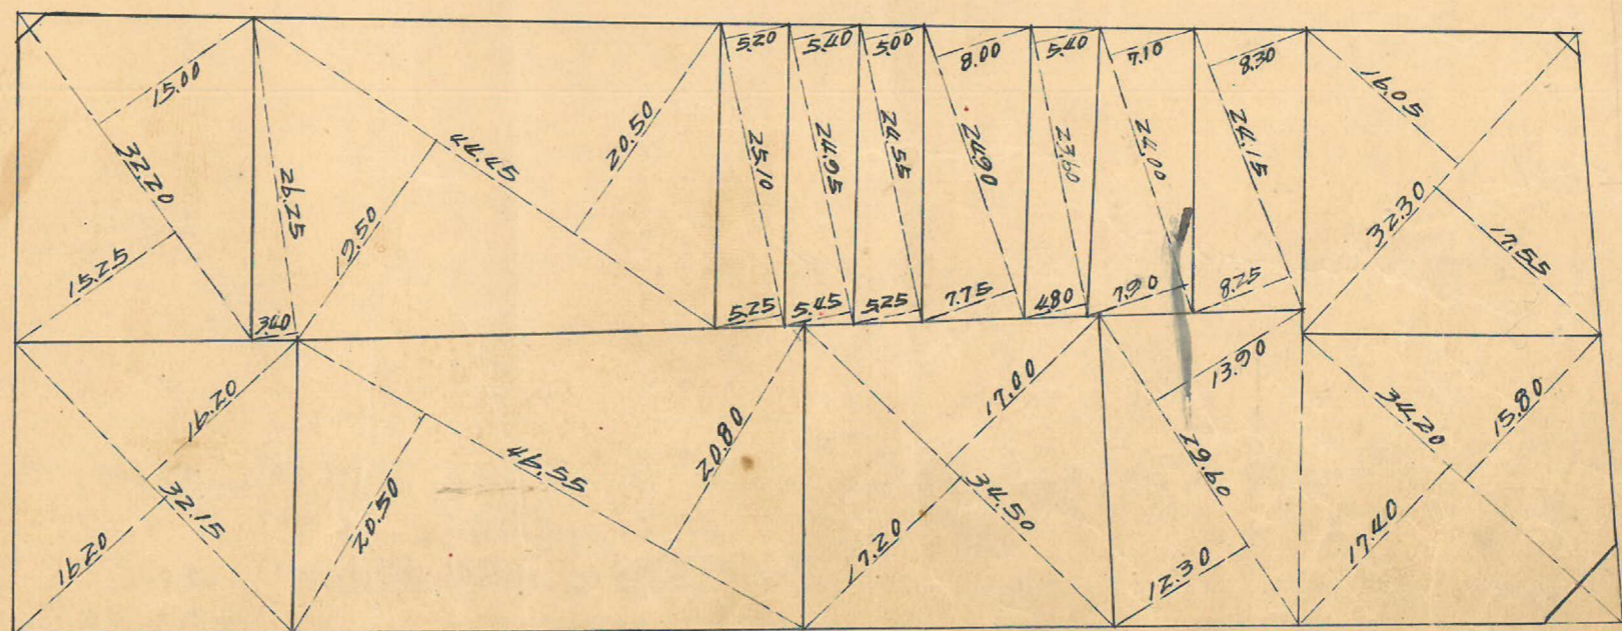 15.00
32.20
15.25
26.25
3.40
44.45
19.50
20.50
5.20
25.10
5.25
5.40
24.95
5.45
5.00
24.55
5.25
8.00
24.90
7.75
5.40
23.60
4.80
7.10
24.00
7.90
8.30
24.15
8.25
16.05
32.30
17.55
16.20
32.15
16.20
46.55
20.50
20.80
17.00
34.50
17.20
13.90
29.60
12.30
34.20
15.80
17.40